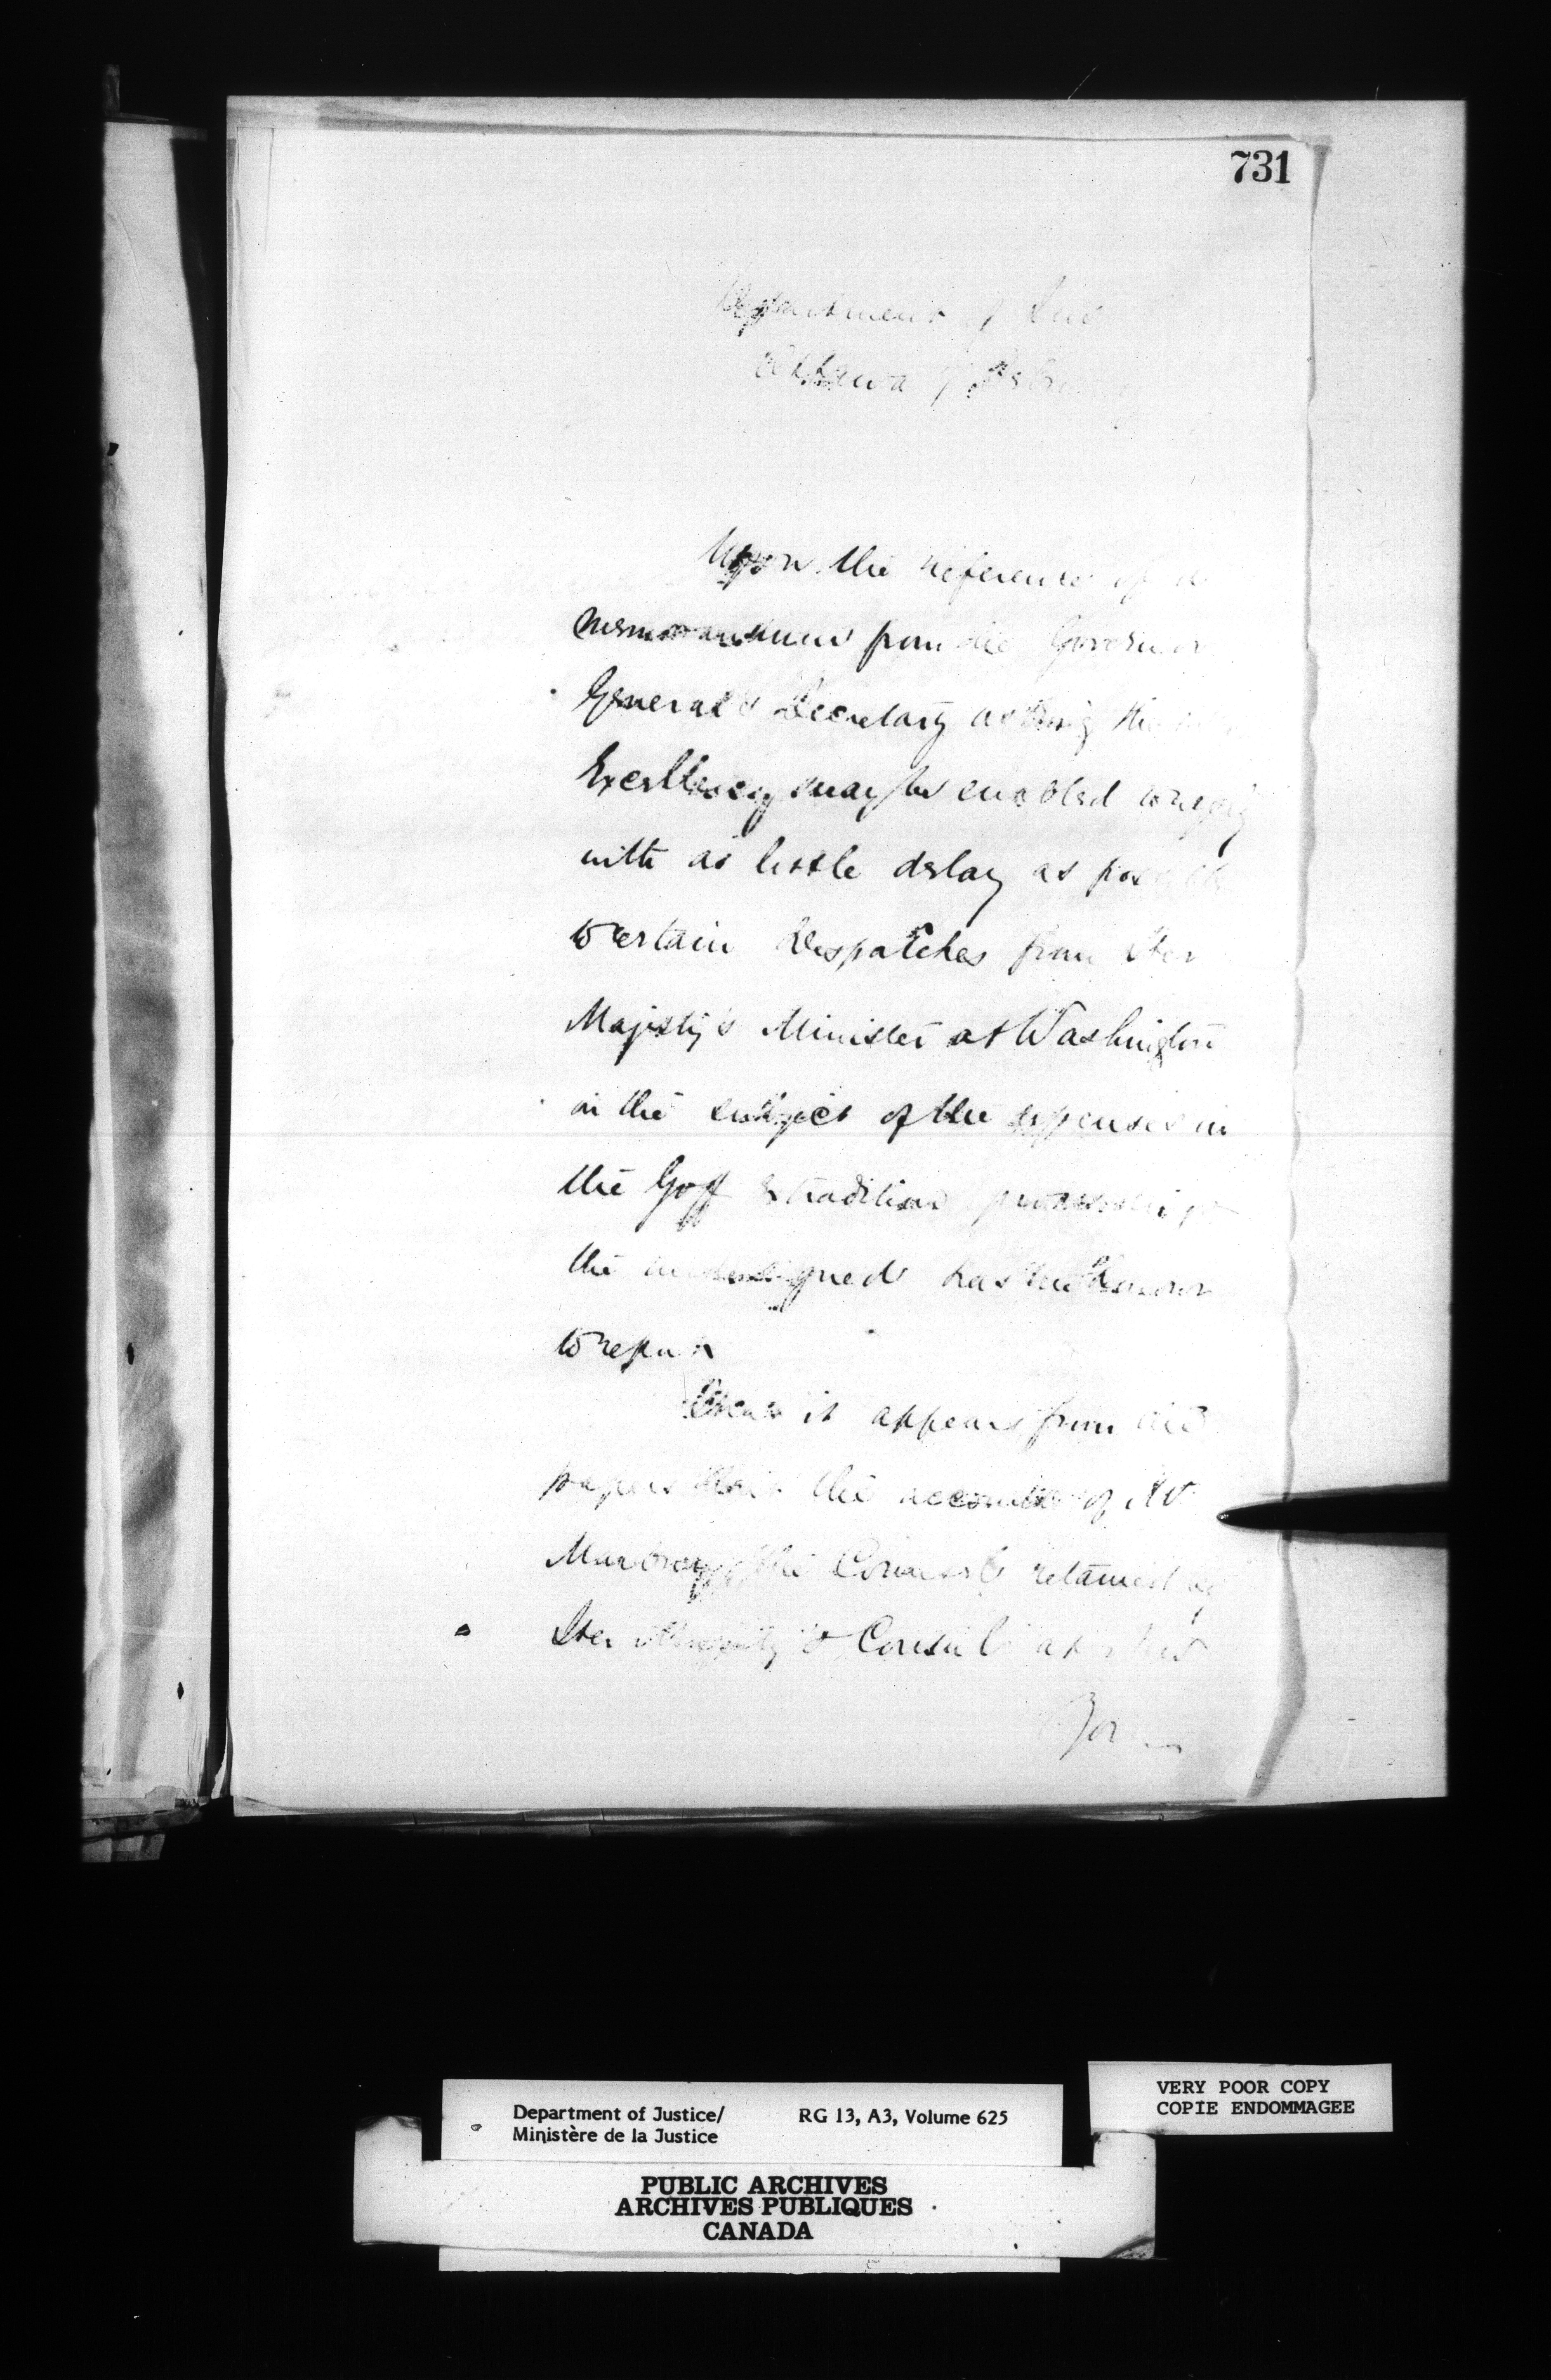 731
Department of
Ottawa 7
Upon the reference of a
memorandum from the Governor
General's Secretary asking that
Excellency may be enabled to reply
with as little delay as possible
to certain despatches from Her
Majesty's Minister at Washington
on the subject of the expenses in
the Goff Extradition
the undersigned has the honor
to report
it appears from the
papers that the accounts of
the Counsel retained by
Her Majesty's Consul at New
York
Department of Justice/
Ministère de la Justice
RG 13, A3, Volume 625
VERY POOR COPY
COPIE ENDOMMAGEE
PUBLIC ARCHIVES
ARCHIVES PUBLIQUES
CANADA